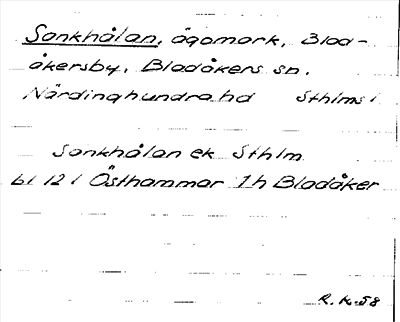 Sankhålan, ägomark, Blad-
åkersby, Bladåkers sn.
Närdinghundra hd Sthlms l
Sankhålan ek Sthlm
bl 12 i Östhammar 1 h Bladåker
R. K. 58